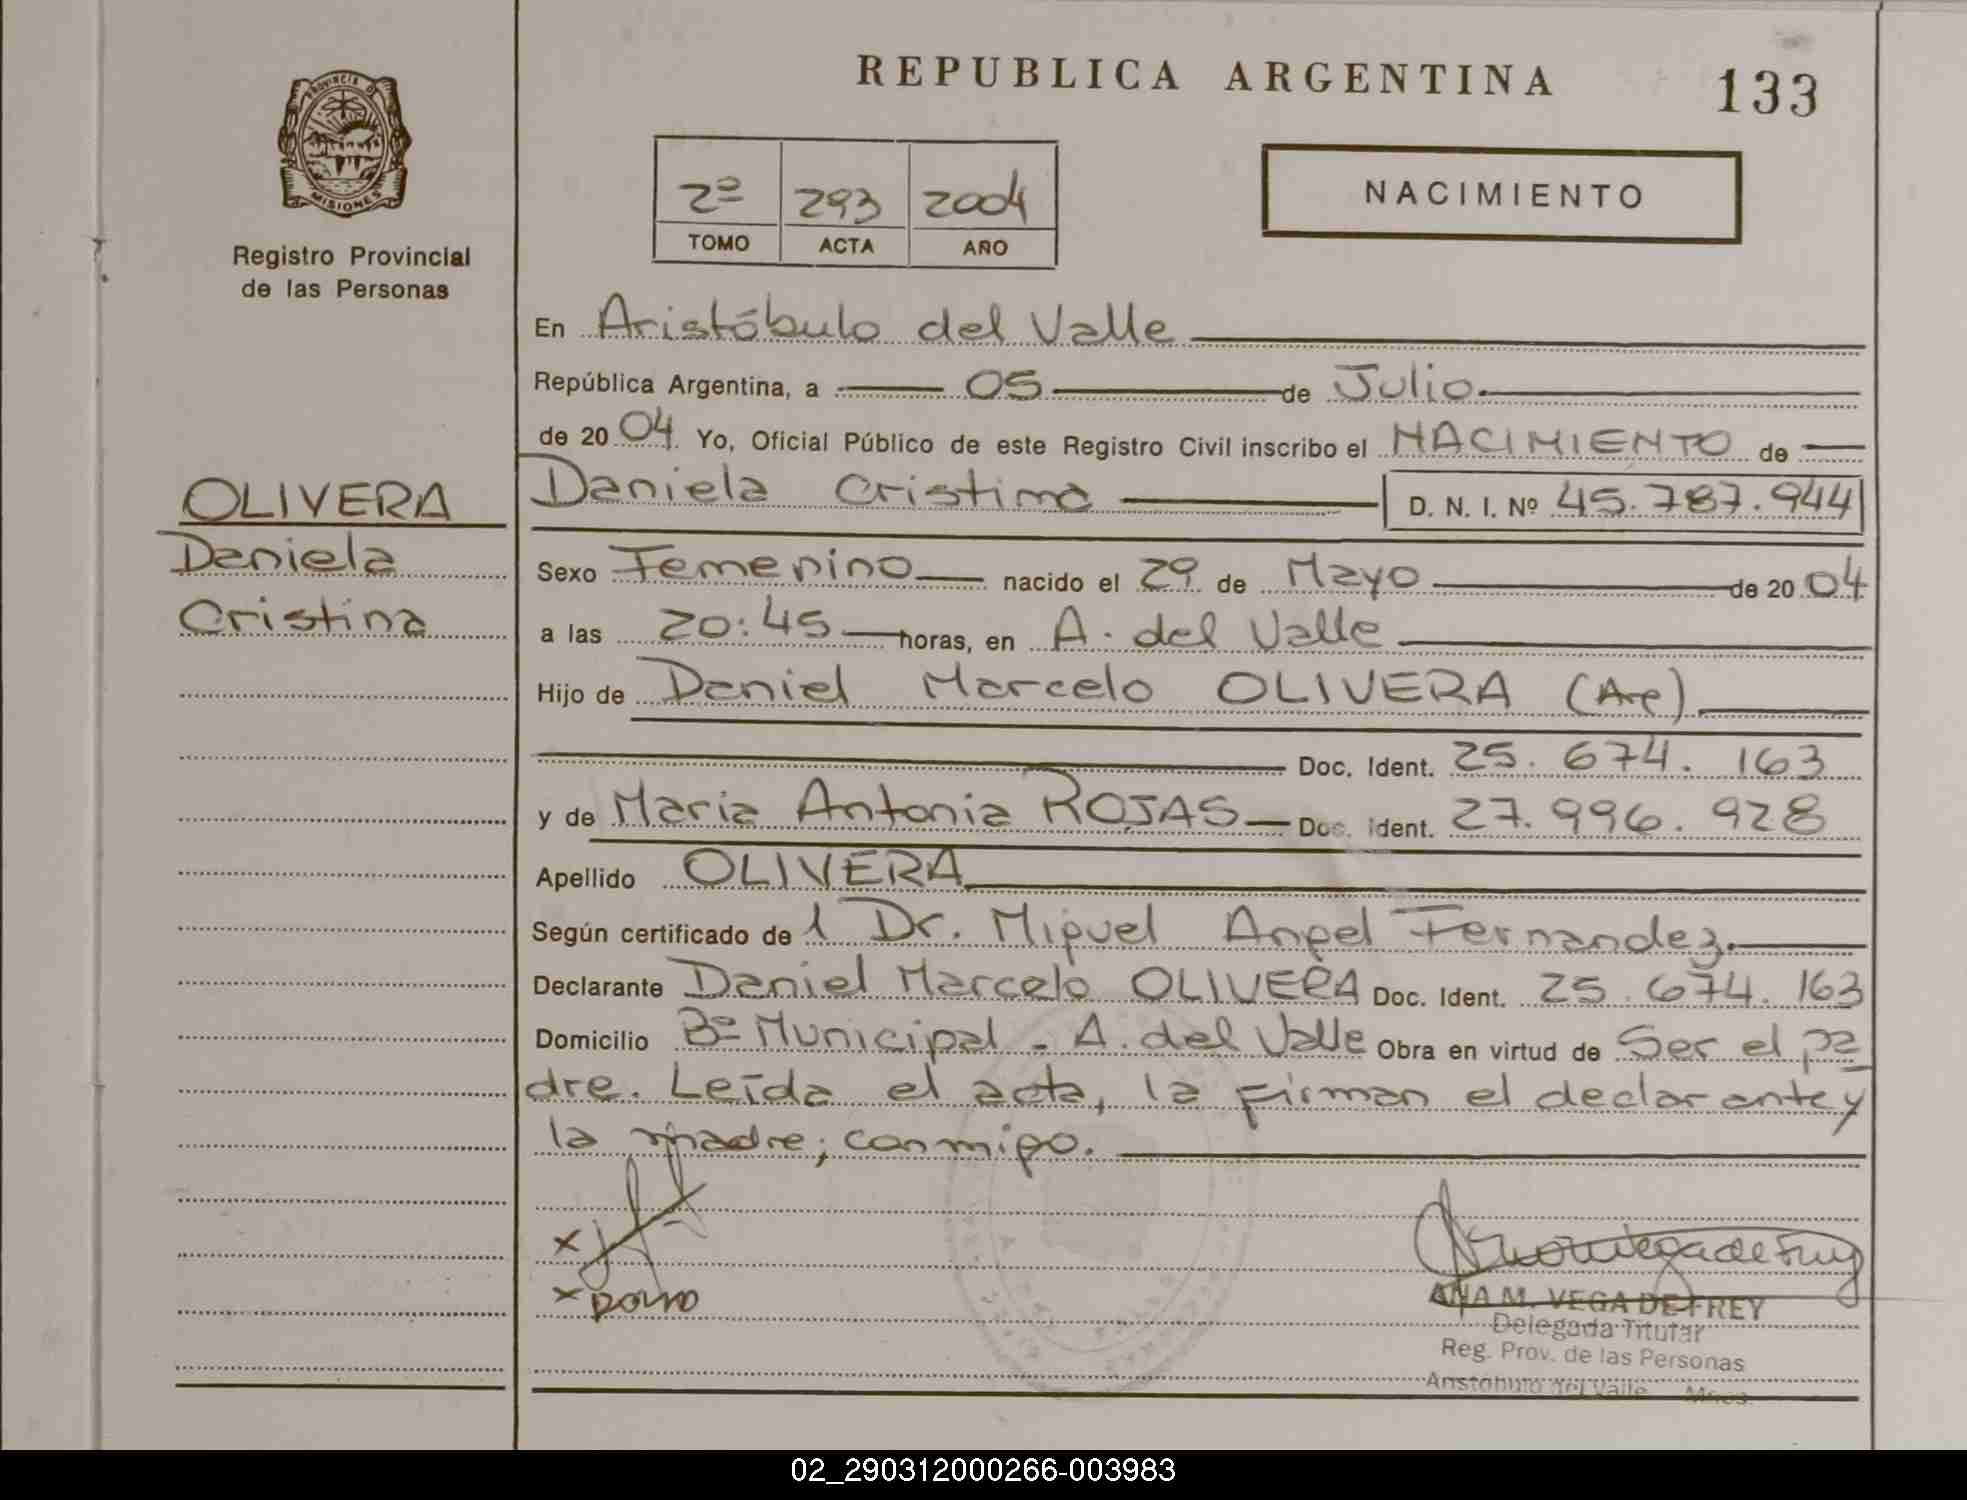 PROVINCIA DE
MISIONES
Registro Provincial
de las Personas
OLIVERA
Daniela
Cristina
REPUBLICA ARGENTINA
133
2º 293 2004
TOMO ACTA AÑO
NACIMIENTO
En Aristóbulo del Valle
República Argentina, a 05 de Julio.
de 2004. Yo, Oficial Público de este Registro Civil inscribo el NACIMIENTO de
Daniela Cristina D. N. I. Nº 45.787.944
Sexo Femenino nacido el 29 de Mayo de 2004
a las 20:45 horas, en A. del Valle
Hijo de Daniel Marcelo OLIVERA (Ar)
Doc. Ident. 25. 674. 163
y de Maria Antonia ROJAS Doc. Ident. 27. 996. 928
Apellido OLIVERA
Según certificado de l Dr. Miguel Angel Fernandez.
Declarante Daniel Marcelo OLIVERA Doc. Ident. 25. 674. 163
Domicilio Bº Municipal - A. del Valle Obra en virtud de Ser el pa
dre. Leída el acta, la firman el declarante y
la madre; conmigo.
x
x
ANA M. VEGA DE FREY
Delegada Titular
Reg. Prov. de las Personas
Aristóbulo del Valle Mnes.
02_290312000266-003983